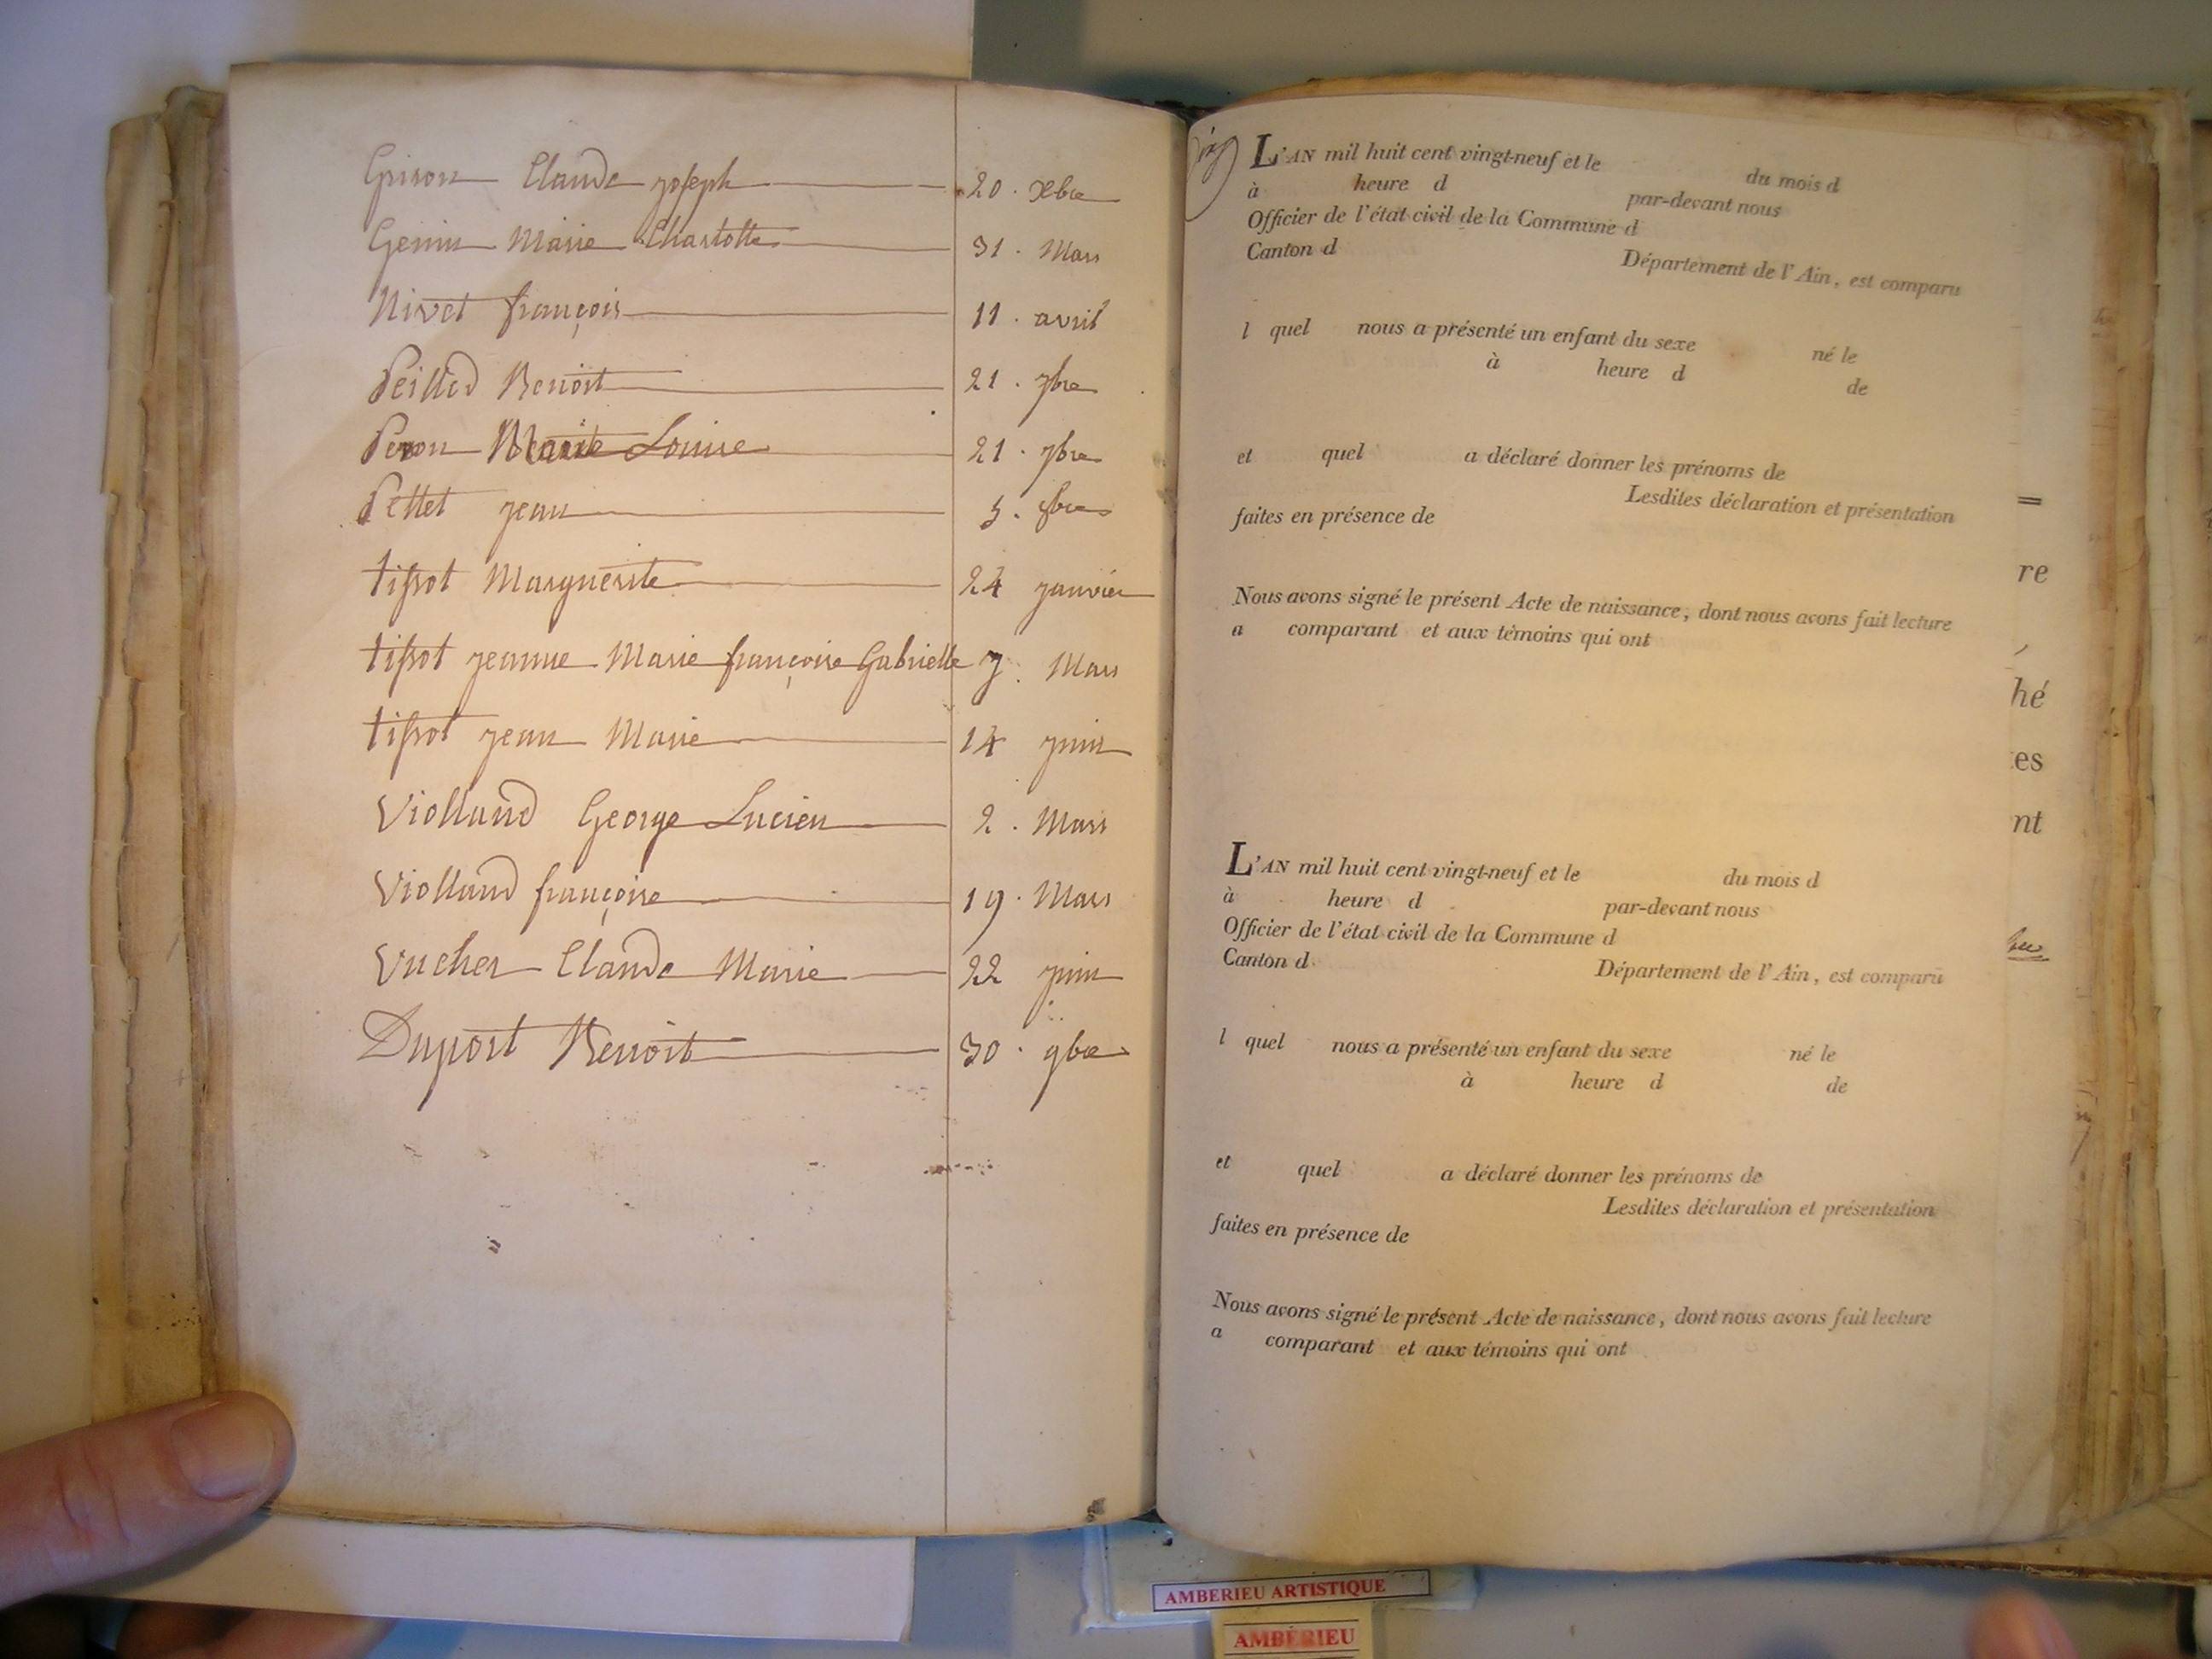 Grison Claude joseph 20. Xbre
Genin Marie Charlotte 31. Mars
Nivet françois 11. avril
Peilled Benoit 21. 7bre
Peron Marie Louise 21. 7bre
Pettet jean 5.
tissot Marguerite 24 janvier
tissot jeanne Marie françoise Gabrielle 7. Mars
tissot jean Marie 14 juin
Violland George Lucien 2. Mars
Violland françoise 19. Mars
Vucher Claude Marie 22 juin
Duport Benoit 30. 9bre
L'AN mil huit cent vingt-neuf et le du mois d
à heure d par-devant nous
Officier de l'état civil de la Commune d
Canton d Département de l'Ain, est comparu
l quel nous a présenté un enfant du sexe né le
à heure d de
et quel a déclaré donner les prénoms de
Lesdites déclaration et présentation
faites en présence de
Nous avons signé le présent Acte de naissance, dont nous avons fait lecture
a comparant et aux témoins qui ont
L'AN mil huit cent vingt-neuf et le du mois d
à heure d par-devant nous
Officier de l'état civil de la Commune d
Canton d Département de l'Ain, est comparu
l quel nous a présenté un enfant du sexe né le
à heure d de
et quel a déclaré donner les prénoms de
Lesdites déclaration et présentation
faites en présence de
Nous avons signé le présent Acte de naissance, dont nous avons fait lecture
a comparant et aux témoins qui ont
=
re
,
hé
tes
nt
AMBERIEU ARTISTIQUE
AMBÉRIEU